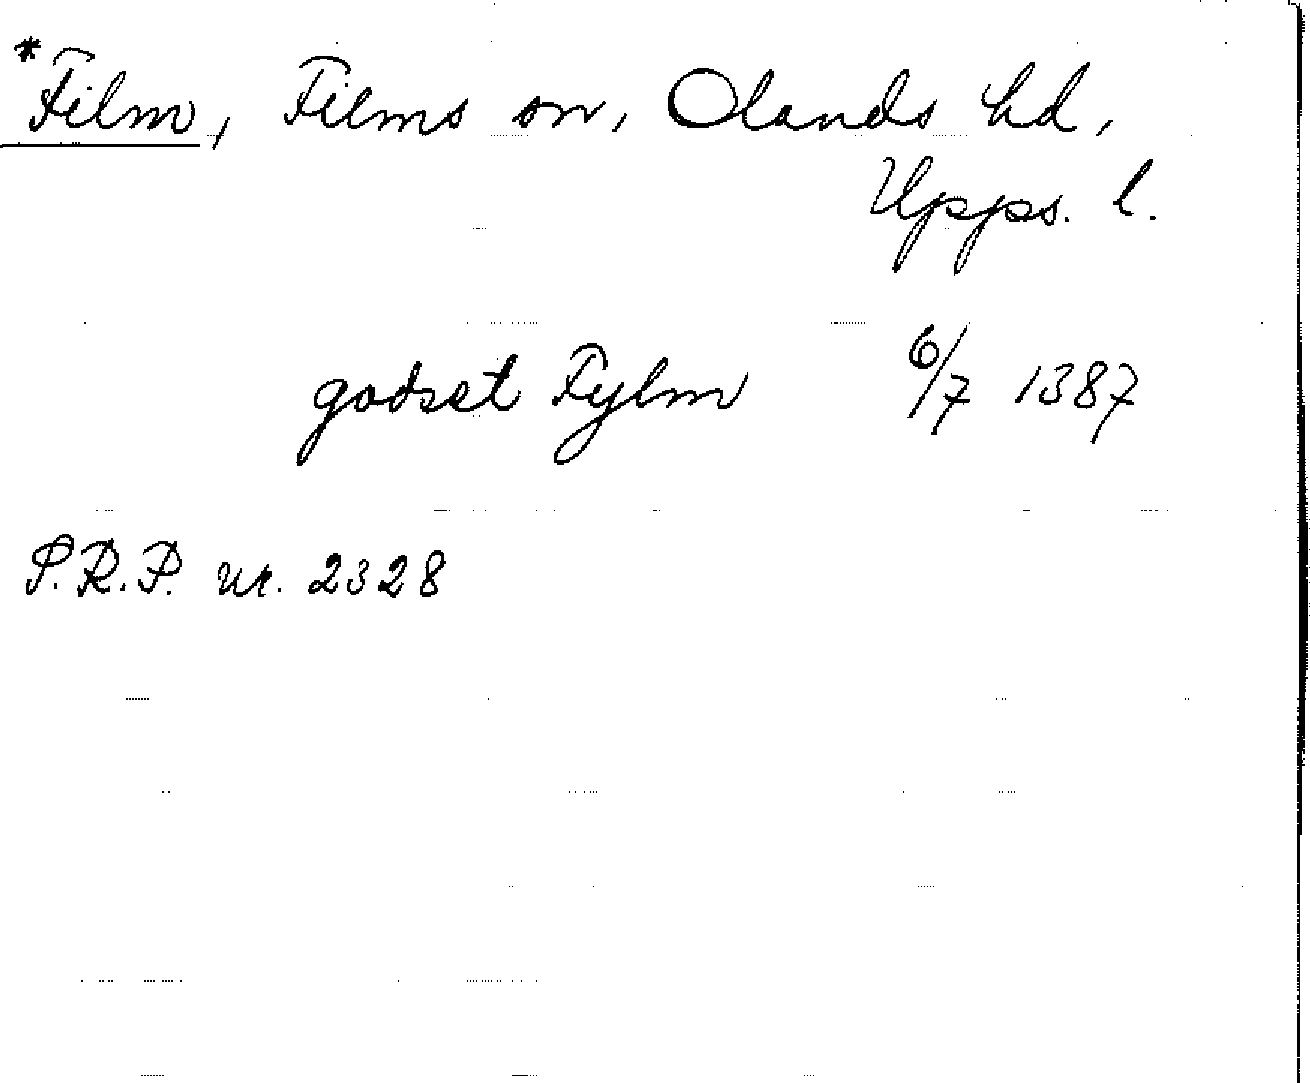 *Film, Films sn, Olands hd,
Upps. l.
godset Fylm 6/7 1387
S.R.P. nr. 2328